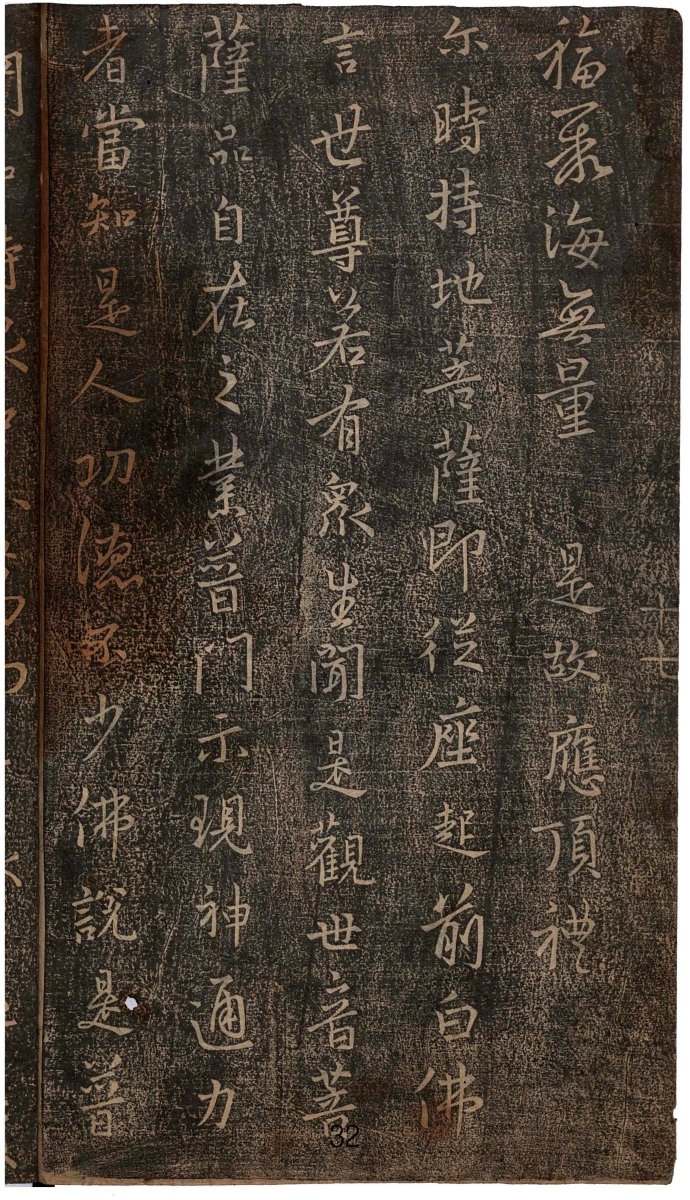 十七
福聚海無量 是故應頂禮
尔時持地菩薩即從座起前白佛
言世尊若有衆生聞是觀世音菩
薩品自在之業普門示現神通力
者當知是人功德不少佛說是普
門品時
32